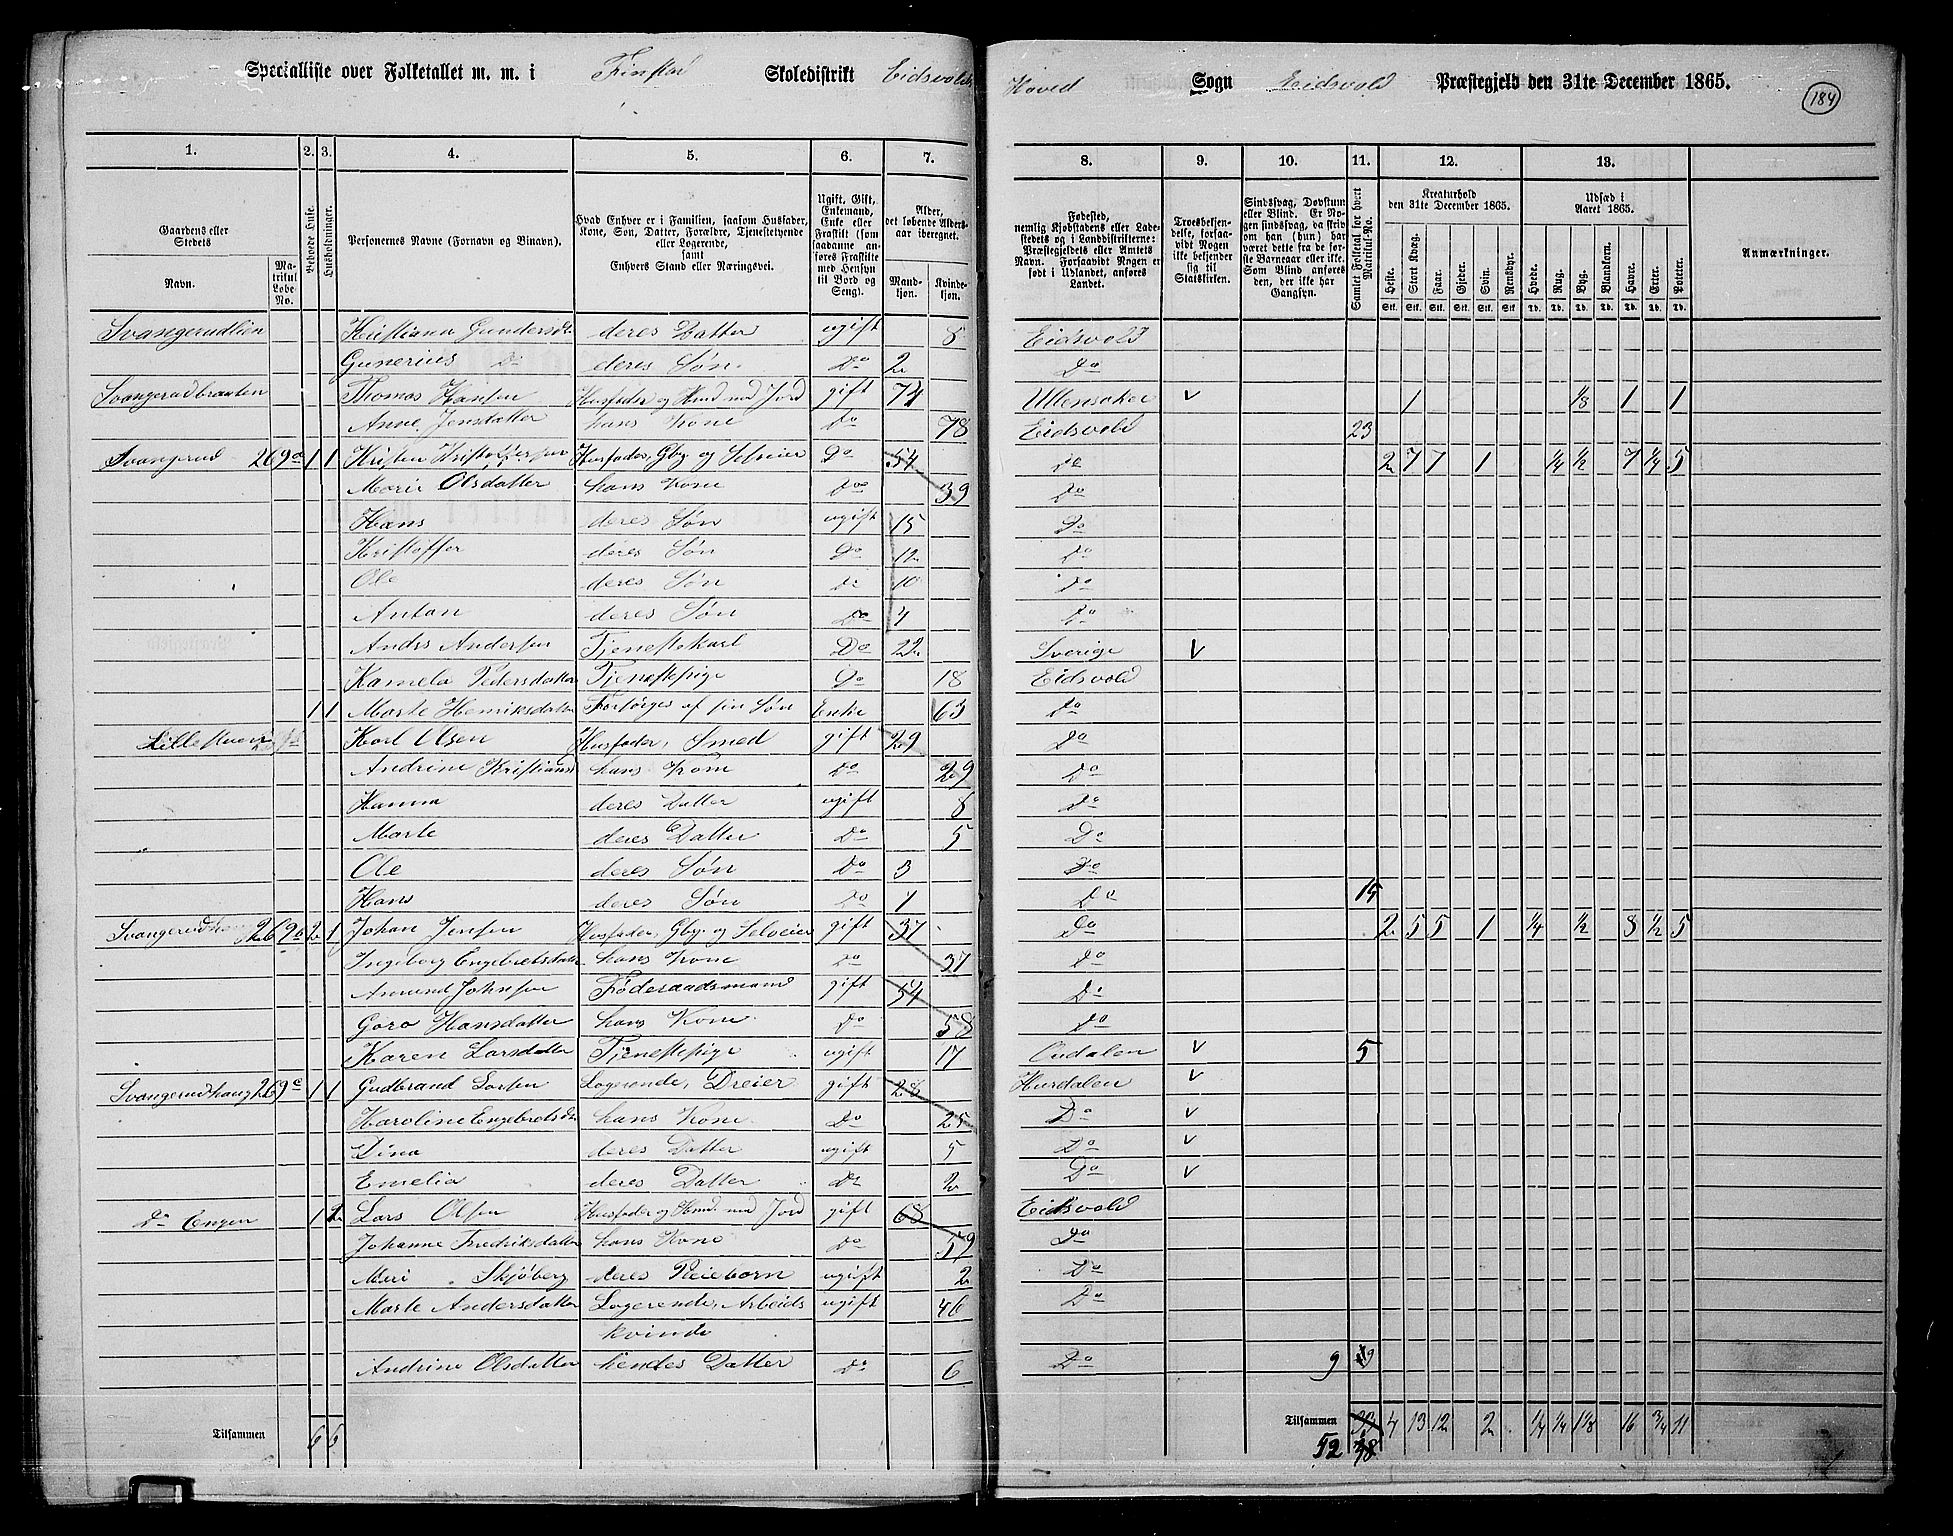 Specialliste over Folketallet m. m. i Finstad Skoledistrikt Eidsvolds Hoved Sogn Eidsvold Præstegjeld den 31te December 1865.
184
1. 2. 3. 4. 5. 6. 7. 8. 9. 10. 11. 12. 13.
Gaardens eller Stedets
Navn.
Matrikul Løbe-No.
Beboede Huse.
Husholdninger.
Personernes Navne (Fornavn og Binavn).
Hvad Enhver er i Familien, saasom Husfader, Kone, Søn, Datter, Forældre, Tjenestetyende eller Logerende, samt Enhvers Stand eller Næringsvei.
Ugift, Gift, Enkemand, Enke eller Fraskilt (som saadanne anføres Fraskilte med Hensyn til Bord og Seng).
Alder, det løbende Aldersaar iberegnet.
Mandkjøn.
Kvindekjøn.
Fødested, nemlig Kjøbstadens eller Ladestedets og i Landdistrikterne: Præstegjeldets eller Amtets Navn. Forsaavidt Nogen er født i Udlandet, anføres Landet.
Troesbekjendelse, forsaavidt Nogen ikke bekjender sig til Statskirken.
Sindssvag, Døvstum eller Blind. Er Nogen sindssvag, da skrives om han (hun) har været dette fra de første Barneaar eller ikke. Som Blind anføres den, der ikke har Gangsyn.
Samlet Folketal for hvert Matrikul-No.
Kreaturhold den 31te December 1865.
Heste. Stort Kvæg. Faar. Gjeder. Svin. Rensdyr.
Stk. Stk. Stk. Stk. Stk. Stk.
Udsæd i Aaret 1865.
Hvede. Rug. Byg. Blandkorn. Havre. Erter. Poteter.
Td. Td. Td. Td. Td. Td. Td.
Anmærkninger.
Svangerudlien Kristiana Gundersdt. deres Datter ugift 8 Eidsvold
Gunerius Do deres Søn Do 2 Do
Svangerudbraaten Thomas Hansen Husfader og Husmd med Jord gift 74 Ullensaker v 1 1/8 1 1
Anne Jensdatter hans Kone Do 78 Eidsvold 23
Svangerud 269a 1 1 Kristen Kristoffersen Husfader, Gbr og Selveier Do 54 Do 2 7 7 1 1/4 1/2 7 1/4 5
Marie Olsdatter hans Kone Do 39 Do
Hans deres Søn ugift 15 Do
Kristoffer deres Søn Do 12 Do
Ole deres Søn Do 10 Do
Anton deres Søn Do 4 Do
Andrs Andersen Tjenestekarl Do 22 Sverige v
Kamela Pedersdatter Tjenestepige Do 18 Eidsvold
1 1 Marte Henriksdatter Forsørges af sin Søn Enke 63 Do
Lillestuen Karl Olsen Husfader, Smed gift 29 Do
Andrine Kristiansd hans Kone Do 29 Do
Hanna deres Datter ugift 8 Do
Marte deres Datter Do 5 Do
Ole deres Søn Do 3 Do
Hans deres Søn Do 1 Do 15
Svangerudhaug 269b 2 1 Johan Jensen Husfader, Gbr og Selveier gift 37 Do 2 5 5 1 1/4 1/2 8 1/2 5
Ingeborg Engebretsdatter hans Kone Do 37 Do
Amund Johnsen Føderaadsmand gift 54 Do
Goro Hansdatter hans Kone Do 58 Do
Karen Larsdatter Tjenestepige ugift 17 Oudalen v 5
Svangerudhaug 269c 1 1 Gudbrand Larsen Logerende, Dreier gift 28 Hurdalen v
Karoline Engebretsdr hans Kone Do 25 Do v
Dina deres Datter ugift 5 Do v
Emelia deres Datter Do 2 Do v
Do Engen 1 2 Lars Olsen Husfader og Husmd med Jord gift 68 Eidsvold
Johanne Fredriksdatter hans Kone Do 59 Do
Meri Skjøberg deres Pleiebarn ugift 2 Do
Marte Andersdatter Logerende, Arbeids ugift 46 Do
kvinde
Andrine Olsdatter hendes Datter Do 6 Do 9 9
Tilsammen 6 6 Tilsammen 33 4 13 12 2 1/4 1/4 1 1/8 16 3/4 11
52 48